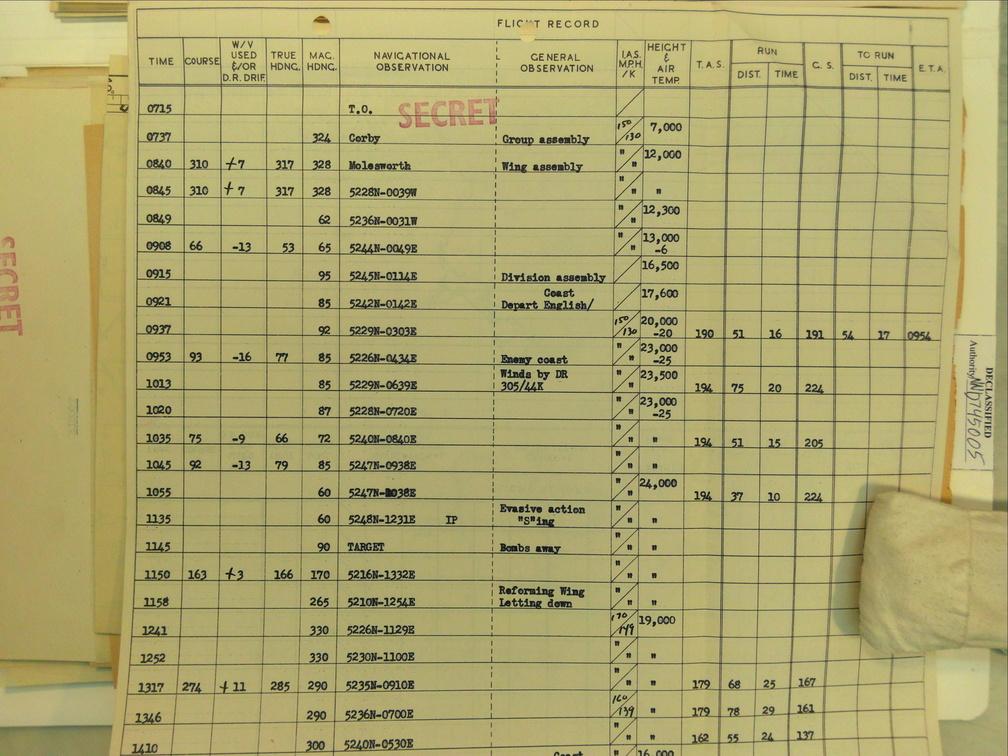 FLIGHT RECORD
TIME COURSE W/V USED &/OR D.R. DRIF. TRUE HDNG. MAG. HDNG. NAVIGATIONAL OBSERVATION GENERAL OBSERVATION I.A.S. M.P.H. /K HEIGHT & AIR TEMP. T.A.S. RUN DIST. TIME G.S. TO RUN DIST. TIME E.T.A.
0715 T.O.
SECRET
0737 324 Corby Group assembly 150/130 7,000
0840 310 +7 317 328 Molesworth Wing assembly " " 12,000
0845 310 +7 317 328 5228N-0039W " " "
0849 62 5236N-0031W " " 12,300
0908 66 -13 53 65 5244N-0049E " " 13,000 -6
0915 95 5245N-0114E Division assembly 16,500
0921 85 5242N-0142E Coast Depart English/ 17,600
0937 92 5229N-0303E 150/130 20,000 -20 190 51 16 191 54 17 0954
0953 93 -16 77 85 5226N-0434E Enemy coast " " 23,000 -25
1013 85 5229N-0639E Winds by DR 305/44K " " 23,500 194 75 20 224
1020 87 5228N-0720E " " 23,000 -25
1035 75 -9 66 72 5240N-0840E " " " 194 51 15 205
1045 92 -13 79 85 5247N-0938E " " "
1055 60 5247N-1038E " " 24,000 194 37 10 224
1135 60 5248N-1231E IP Evasive action "S"ing " " "
1145 90 TARGET Bombs away " " "
1150 163 +3 166 170 5216N-1332E " " "
1158 265 5210N-1254E Reforming Wing Letting down " " "
1241 330 5226N-1129E 170/149 19,000
1252 330 5230N-1100E " " "
1317 274 +11 285 290 5235N-0910E " " " 179 68 25 167
1346 290 5236N-0700E 160/139 " 179 78 29 161
1410 300 5240N-0530E " " " 162 55 24 137
Coast 16,000
SECRET
DECLASSIFIED
Authority NND745005